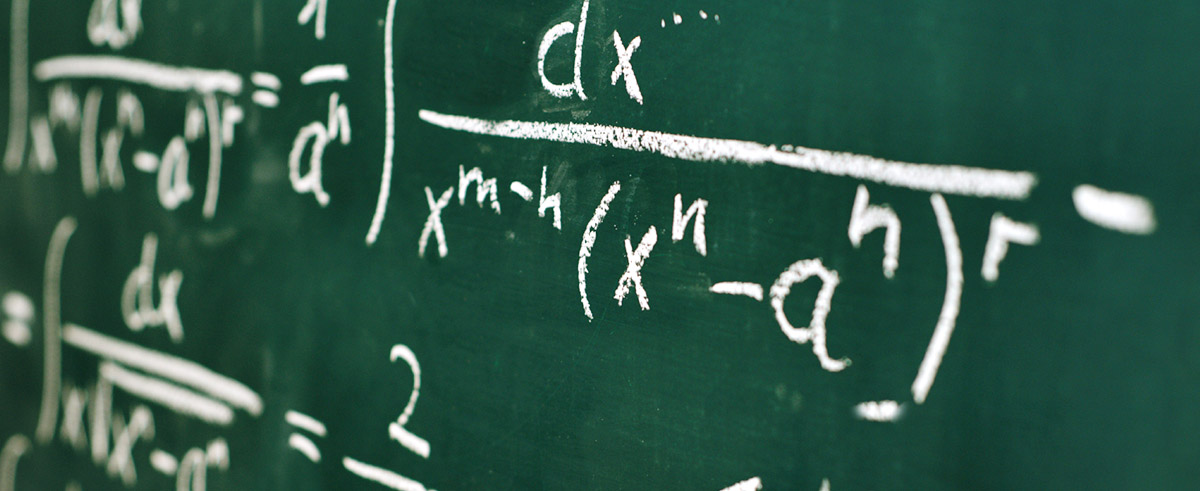 ∫ dx / x^m (x^n - a^n)^r = 1 / a^n ∫ dx / x^{m-n} (x^n - a^n)^r -
= ∫ dx / x √x^n - a^n = 2